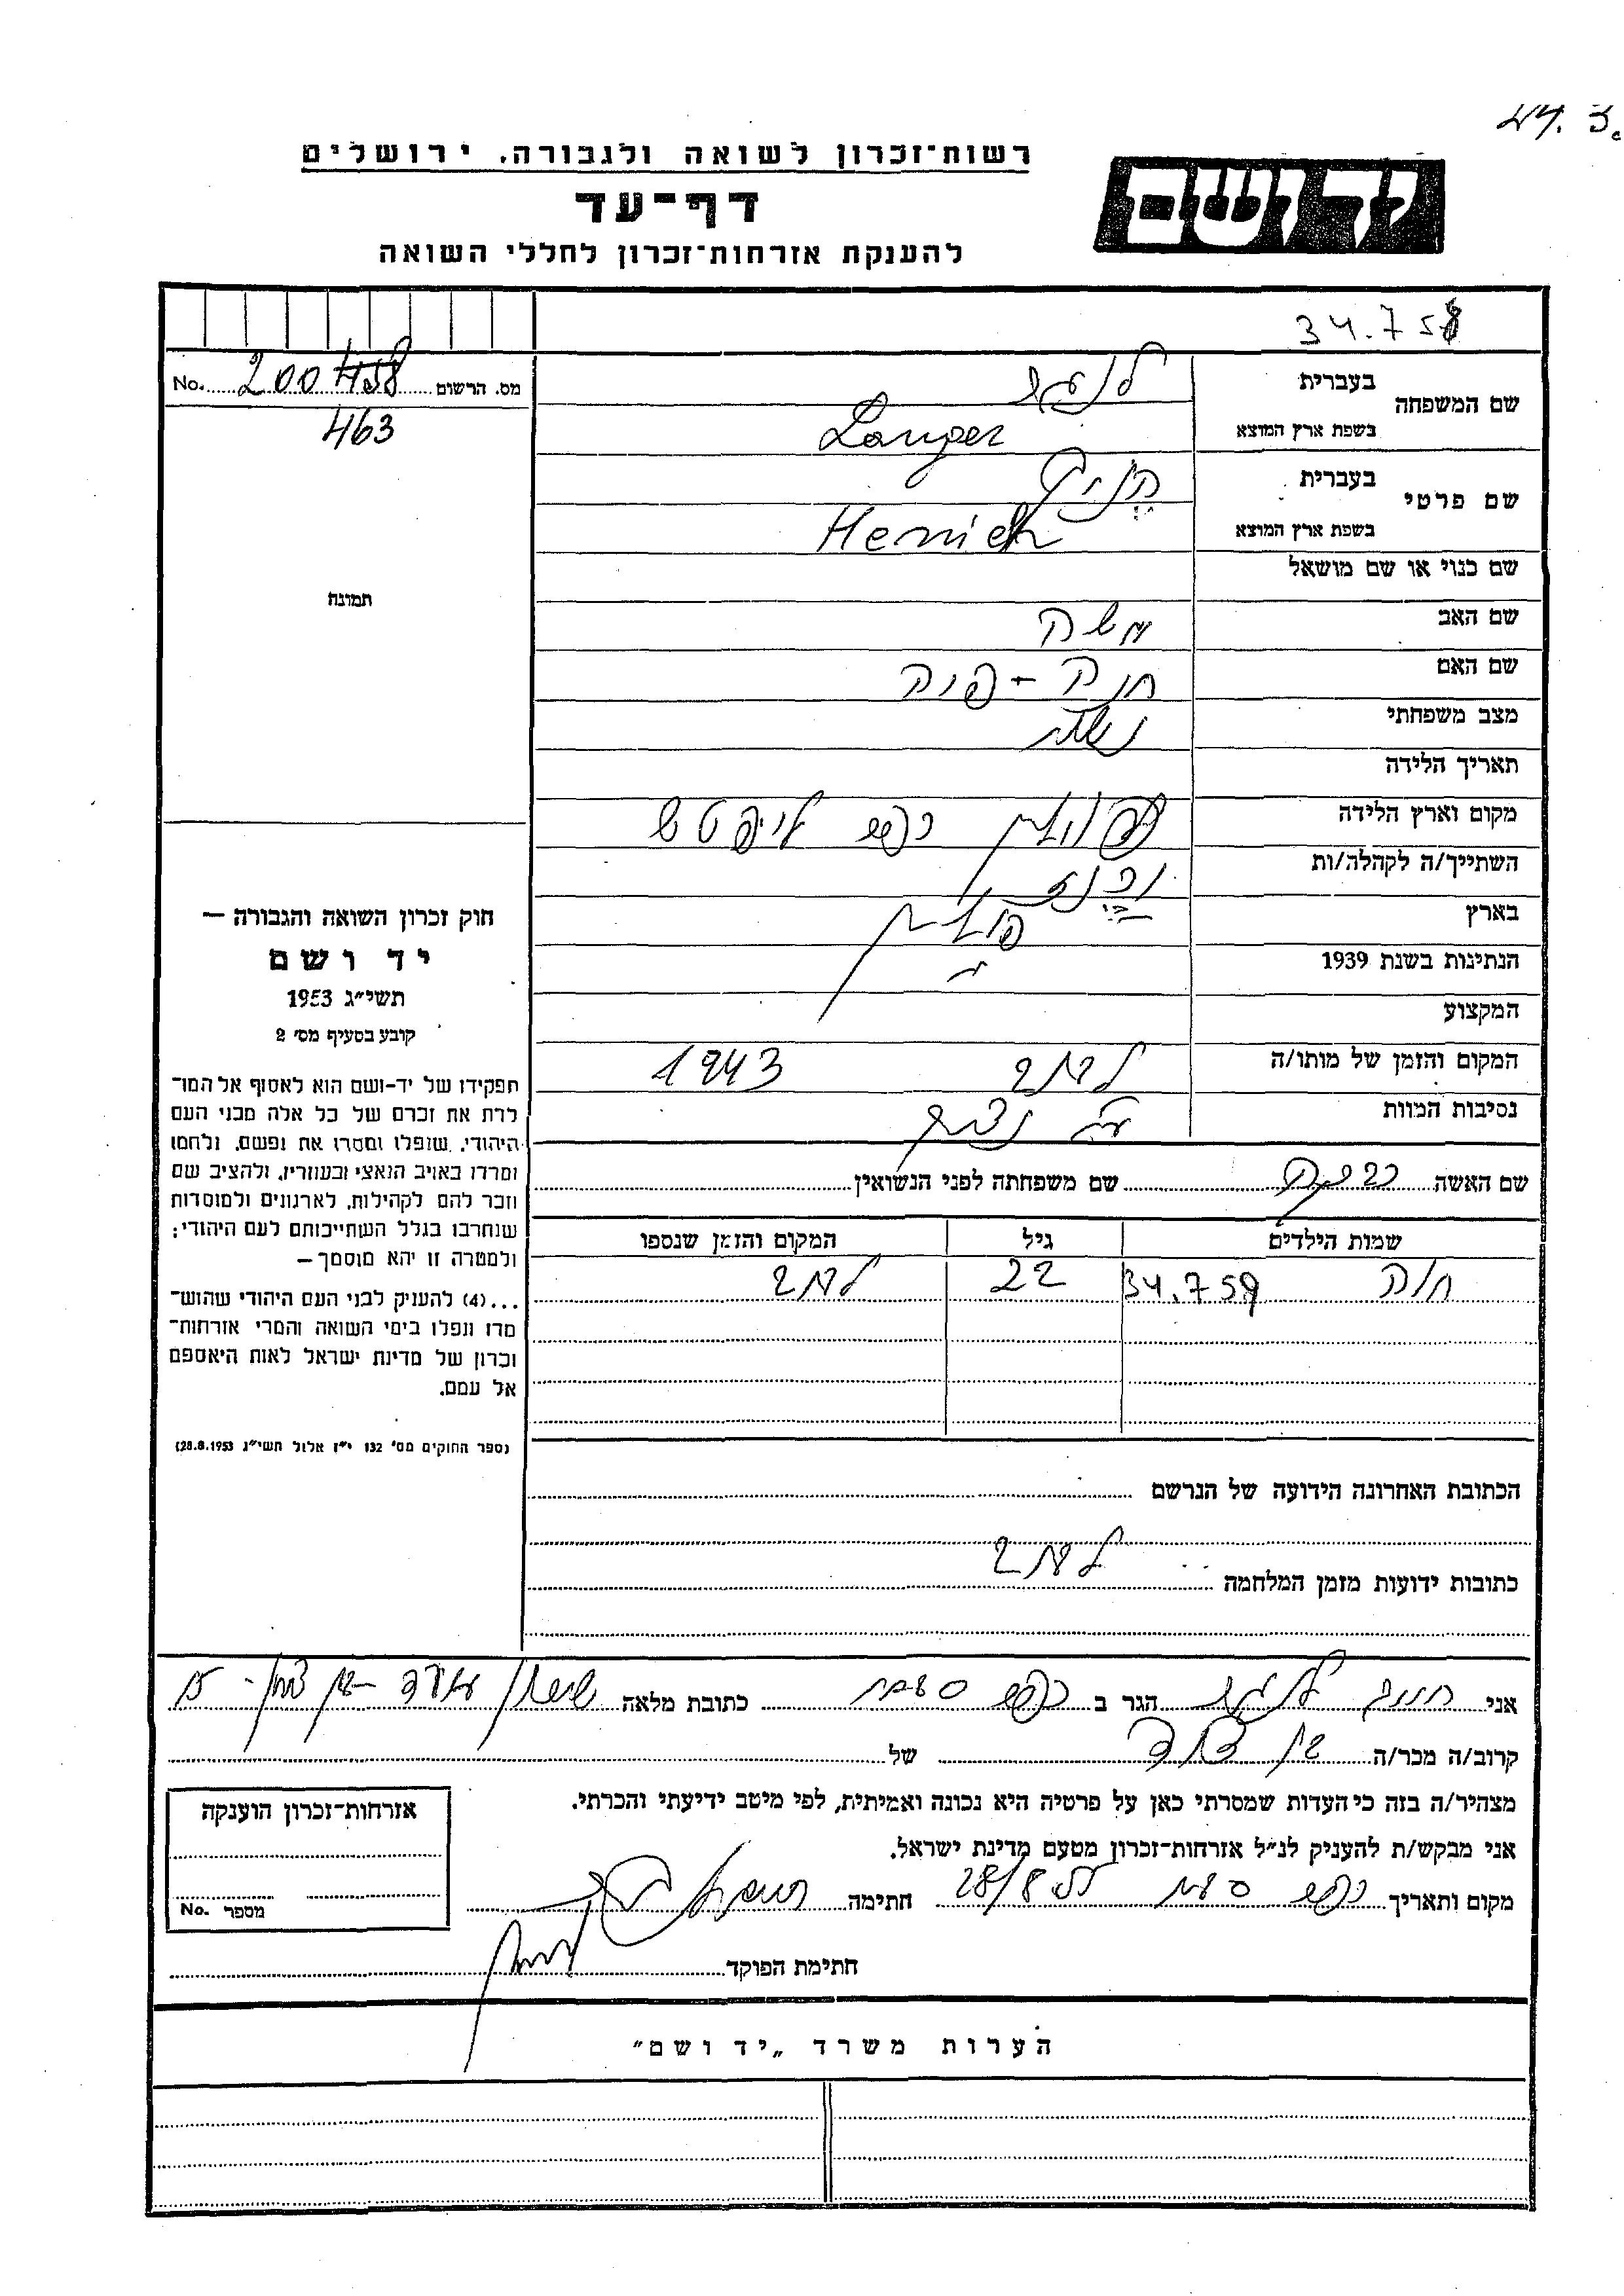 24. 3.
רשות־זכרון לשואה ולגבורה. ירושלים
יד ושם
דף־עד
להענקת אזרחות־זכרון לחללי השואה
34.758
מס. הרשום 200458 No.
463
שם המשפחה בעברית לנגר
בשפת ארץ המוצא Langer
שם פרטי בעברית הניך
בשפת ארץ המוצא Henich
שם כנוי או שם מושאל
תמונה
שם האב משה
שם האם חנה - פיה
מצב משפחתי נשוי
תאריך הלידה
מקום וארץ הלידה
השתייך/ה לקהלה/ות
בארץ פולין
הנתינות בשנת 1939
המקצוע
המקום והזמן של מותו/ה לבוב 1943
נסיבות המוות
שם האשה רבקה שם משפחתה לפני הנשואין
שמות הילדים גיל המקום והזמן שנספו
חיה 34.759 22 לבוב
חוק זכרון השואה והגבורה —
יד ושם
תשי״ג 1953
קובע בסעיף מס׳ 2
תפקידו של יד־ושם הוא לאסוף אל המו־
לדת את זכרם של כל אלה מבני העם
היהודי, שנפלו ומסרו את נפשם, נלחמו
ומרדו באויב הנאצי ובעוזריו, ולהציב שם
וזכר להם לקהילות, לארגונים ולמוסדות
שנחרבו בגלל השתייכותם לעם היהודי;
ולמטרה זו יהא מוסמך—
...(4) להעניק לבני העם היהודי שהוש־
מדו ונפלו בימי השואה והמרי אזרחות־
זכרון של מדינת ישראל לאות היאספם
אל עמם.
(ספר החוקים מס׳ 132 י״ז אלול תשי״ג 28.8.1953)
הכתובת האחרונה הידועה של הנרשם
כתובות ידועות מזמן המלחמה לבוב
אני לנגר הגר ב כפר סבא כתובת מלאה שיכון
קרוב/ה מכר/ה בן דוד של
מצהיר/ה בזה כי העדות שמסרתי כאן על פרטיה היא נכונה ואמיתית, לפי מיטב ידיעתי והכרתי.
אני מבקש/ת להעניק לנ״ל אזרחות־זכרון מטעם מדינת ישראל.
מקום ותאריך כפר סבא 28/8 חתימה
חתימת הפוקד
אזרחות־זכרון הוענקה
מספר No.
הערות משרד „יד ושם״